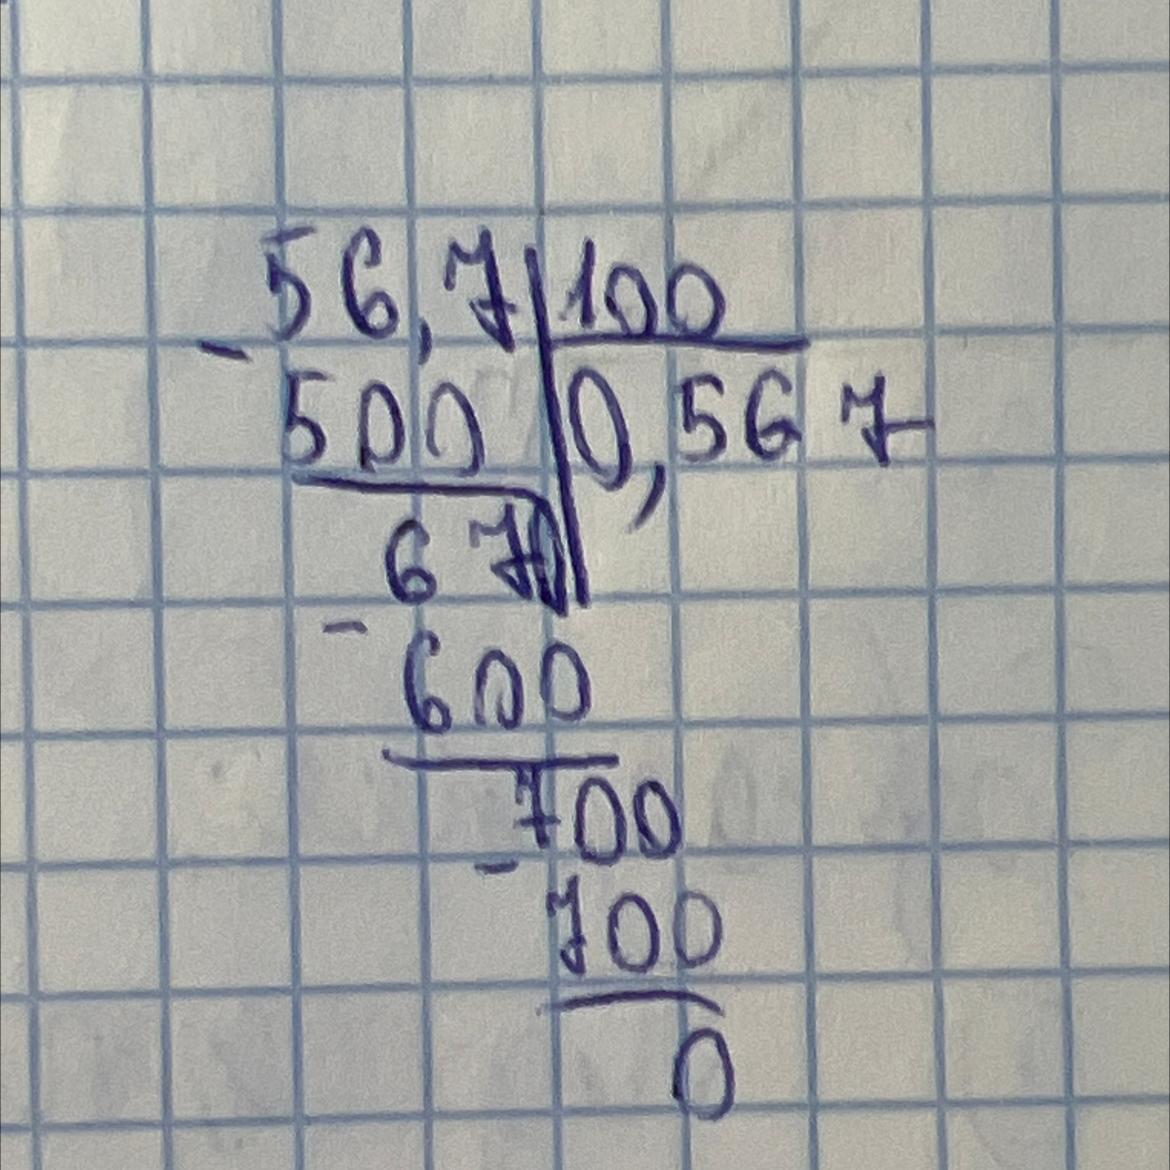 56,7 100
- 500 0,567
670
- 600
700
- 700
0